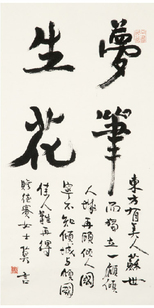 夢筆
生花
東方有美人蘇世
而獨立一顧傾
人城再顧傾人國
寧不知傾城與傾國
佳人難再得
女士莫言